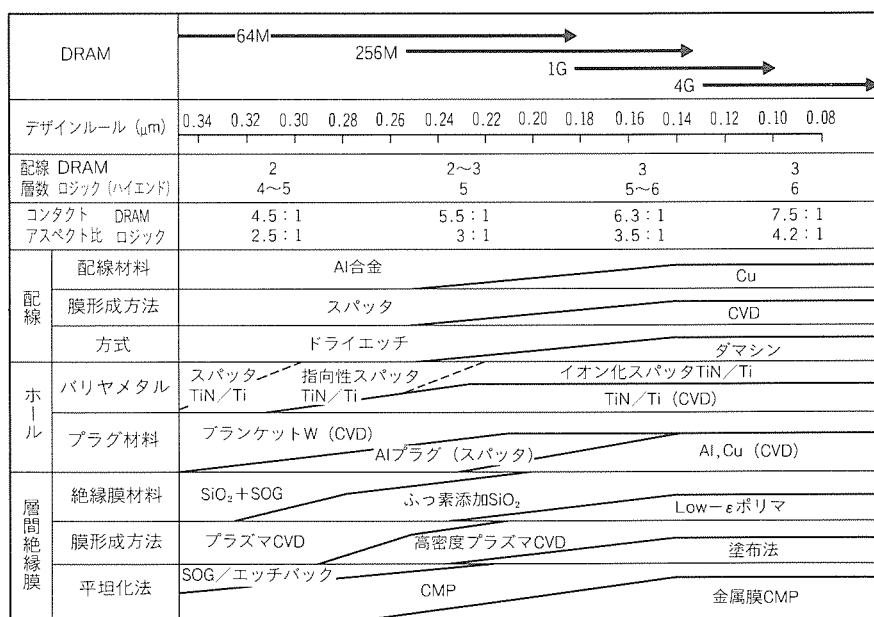 DRAM
64M
256M
1G
4G
デザインルール (μm) 0.34 0.32 0.30 0.28 0.26 0.24 0.22 0.20 0.18 0.16 0.14 0.12 0.10 0.08
配線 DRAM 2 2～3 3 3
層数 ロジック (ハイエンド) 4～5 5 5～6 6
コンタクト DRAM 4.5：1 5.5：1 6.3：1 7.5：1
アスペクト比 ロジック 2.5：1 3：1 3.5：1 4.2：1
配線
配線材料 Al合金 Cu
膜形成方法 スパッタ CVD
方式 ドライエッチ ダマシン
ホール
バリヤメタル
スパッタ
TiN／Ti
指向性スパッタ
TiN／Ti
イオン化スパッタTiN／Ti
TiN／Ti (CVD)
プラグ材料
ブランケットW (CVD)
Alプラグ (スパッタ)
Al,Cu (CVD)
層間絶縁膜
絶縁膜材料 SiO₂＋SOG ふっ素添加SiO₂ Low－εポリマ
膜形成方法 プラズマCVD 高密度プラズマCVD 塗布法
平坦化法 SOG／エッチバック CMP 金属膜CMP